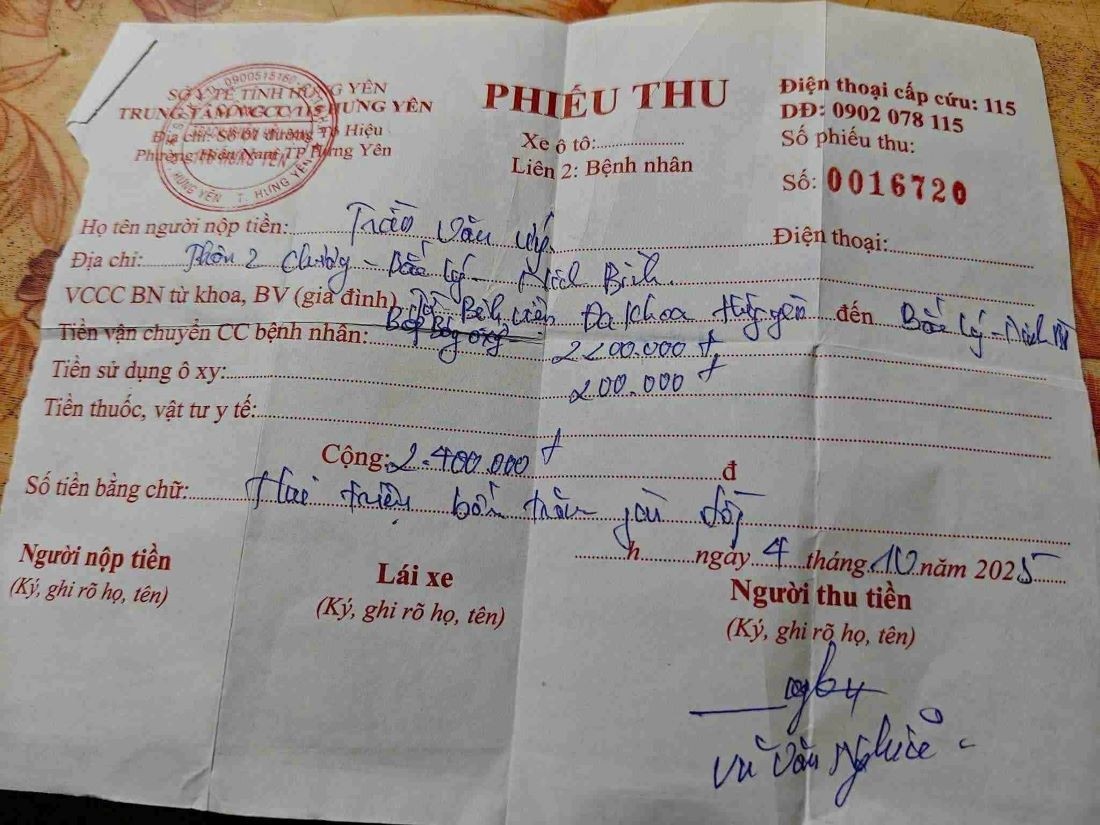 SỞ Y TẾ TỈNH HƯNG YÊN
TRUNG TÂM VCCC 115 HƯNG YÊN
Địa chỉ: Số 01 đường Tô Hiệu
Phường Hiến Nam, TP Hưng Yên
0900515160
HƯNG YÊN T. HƯNG YÊN
PHIẾU THU
Xe ô tô:
Liên 2: Bệnh nhân
Điện thoại cấp cứu: 115
DĐ: 0902 078 115
Số phiếu thu:
Số: 0016720
Họ tên người nộp tiền: Trần Văn Điện thoại:
Địa chỉ: Thôn 2 - Bắc Lý - Ninh Bình
VCCC BN từ khoa, BV (gia đình) Bệnh viện Đa khoa Hưng yên đến Bắc Lý -
Tiền vận chuyển CC bệnh nhân: 2200.000 đ
Tiền sử dụng ô xy: 200.000 đ
Tiền thuốc, vật tư y tế:
Cộng: 2.400.000 đ đ
Số tiền bằng chữ: Hai triệu bốn trăm ngàn đồng
h ngày 4 tháng 10 năm 2025
Người nộp tiền
(Ký, ghi rõ họ, tên)
Lái xe
(Ký, ghi rõ họ, tên)
Người thu tiền
(Ký, ghi rõ họ, tên)
Vũ Văn